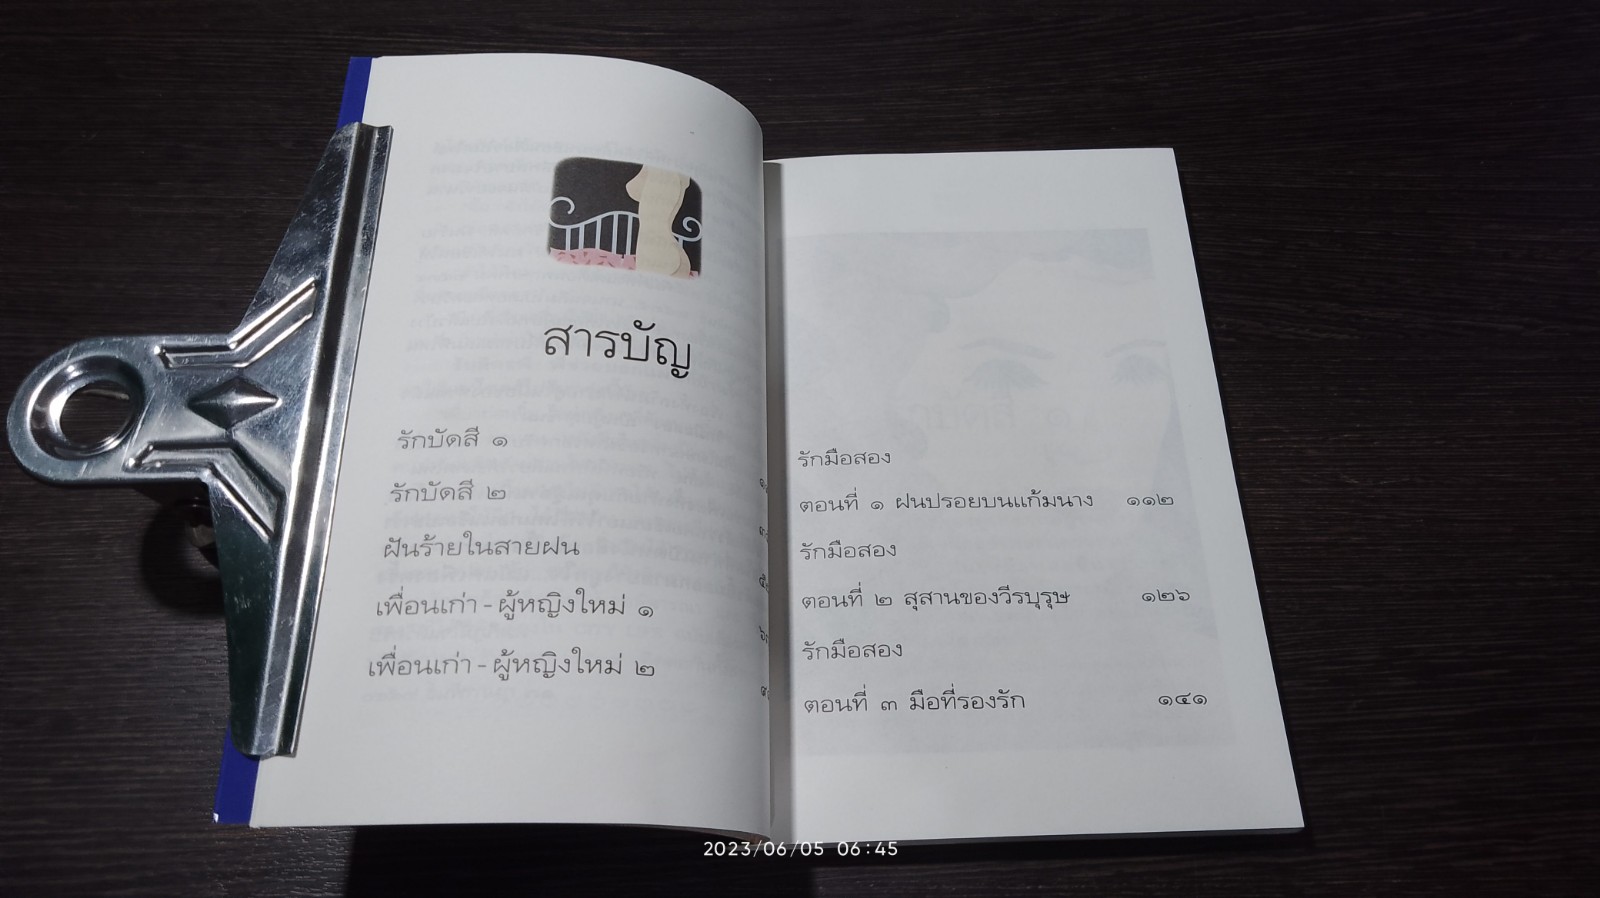 สารบัญ
รักบัดสี ๑
รักบัดสี ๒
ฝันร้ายในสายฝน
เพื่อนเก่า - ผู้หญิงใหม่ ๑
เพื่อนเก่า - ผู้หญิงใหม่ ๒
รักมือสอง
ตอนที่ ๑ ฝนปรอยบนแก้มนาง ๑๑๒
รักมือสอง
ตอนที่ ๒ สุสานของวีรบุรุษ ๑๒๖
รักมือสอง
ตอนที่ ๓ มือที่รองรัก ๑๔๑
2023/06/05 06:45